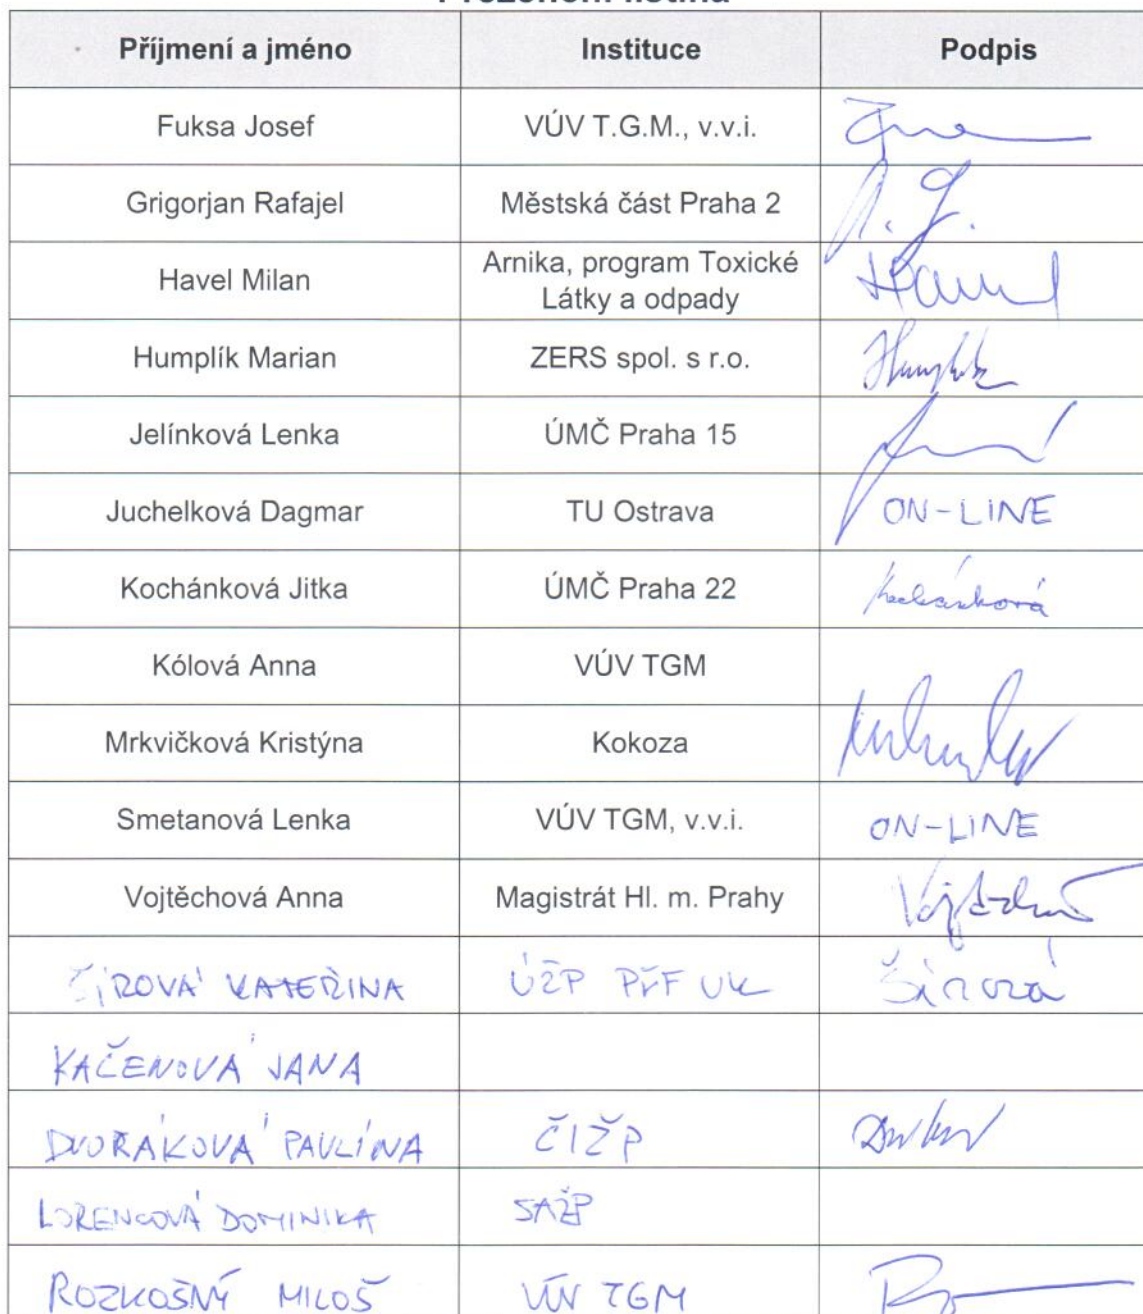 Prezenční listina
Příjmení a jméno Instituce Podpis
Fuksa Josef VÚV T.G.M., v.v.i.
Grigorjan Rafajel Městská část Praha 2
Havel Milan Arnika, program Toxické
Látky a odpady
Humplík Marian ZERS spol. s r.o.
Jelínková Lenka ÚMČ Praha 15
Juchelková Dagmar TU Ostrava ON-LINE
Kochánková Jitka ÚMČ Praha 22 Kochánková
Kólová Anna VÚV TGM
Mrkvičková Kristýna Kokoza
Smetanová Lenka VÚV TGM, v.v.i. ON-LINE
Vojtěchová Anna Magistrát Hl. m. Prahy
ŠÍROVÁ KATEŘINA ÚŽP PŘF UK Šírová
KAČENOVÁ JANA
DVOŘÁKOVÁ PAVLÍNA ČIŽP
LORENCOVÁ DOMINIKA SAŽP
ROZKOŠNÝ MILOŠ VÚV TGM